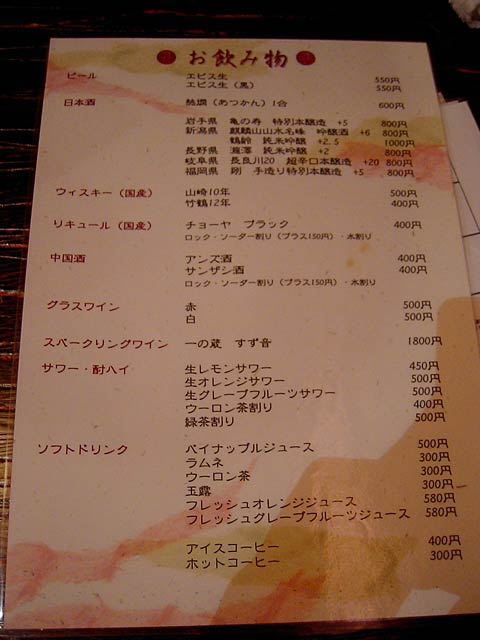 お飲み物
ビール エビス生 550円
エビス生（黒） 550円
日本酒 熱燗（あつかん）1合 600円
岩手県 亀の寿 特別本醸造 +5 800円
新潟県 麒麟山山水名峰 吟醸酒 +6 800円
鶴齢 純米吟醸 +2.5 1000円
長野県 瀧澤 純米吟醸 +2 800円
岐阜県 長良川20 超辛口本醸造 +20 800円
福岡県 剛 手造り特別本醸造 +5 800円
ウィスキー（国産） 山崎10年 500円
竹鶴12年 400円
リキュール（国産） チョーヤ ブラック 400円
ロック・ソーダー割り（プラス150円）・水割り
中国酒 アンズ酒 400円
サンザシ酒 400円
ロック・ソーダー割り（プラス150円）・水割り
グラスワイン 赤 500円
白 500円
スパークリングワイン 一の蔵 すず音 1800円
サワー・酎ハイ 生レモンサワー 450円
生オレンジサワー 500円
生グレープフルーツサワー 500円
ウーロン茶割り 400円
緑茶割り 500円
ソフトドリンク パイナップルジュース 500円
ラムネ 300円
ウーロン茶 300円
玉露 300円
フレッシュオレンジジュース 580円
フレッシュグレープフルーツジュース 580円
アイスコーヒー 400円
ホットコーヒー 300円